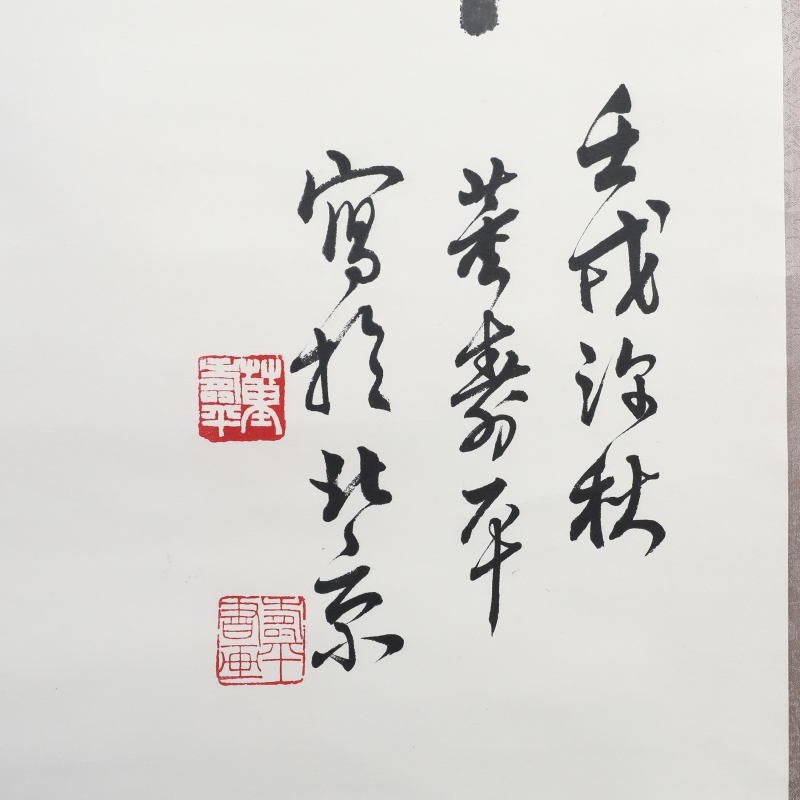 壬戌深秋
董壽平
寫於北京
董壽平
壽平書画